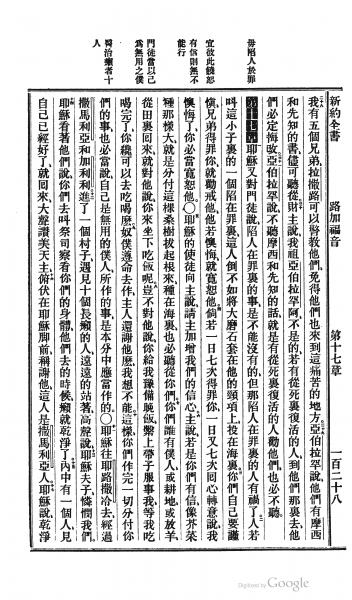 新約全書
路加福音
第十七章
一百二十八
我有五個兄弟拉撒路可以警教他們免得他們也來到這痛苦的地方亞伯拉罕說他們有摩西
和先知的書儘可聽從財主說我祖亞伯拉罕阿不是的若有從死裏復活的人到他們那裏去他
們必定悔改亞伯拉罕說不聽摩西和先知的話就是有從死裏復活的人勸他們也必不聽
第十七章耶穌又對門徒說陷人在罪裏的事是不能沒有的但那陷人在罪裏的人有禍了若
叫這小子裏的一個陷在罪裏這人倒不如將大磨石套在他的頸項上投在海裏你們自己要謹
愼兄弟得罪你就勸戒他他若懊悔就寬恕他倘若一日七次得罪你一日又七次回心轉意說我
懊悔了你必當寬恕他○耶穌的使徒向主說請主加增我們的信心主說若是你們有信像芥菜
種那樣大就是分付這棵桑樹拔起根來種在海裏也必聽從你們你們誰有僕人或耕地或放羊
從田裏回來就對他說你來坐下吃飯呢豈不對他說你給我豫備晚飯繫上帶子服事我等我吃
喝完了你纔可以去吃喝麽奴僕遵命去作主人還謝他麽我想不能這樣你們作完一切分付你
們的事也必當說自己是無用的僕人所作的事是本分中應當作的○耶穌往耶路撒冷去經過
撒馬利亞和加利利進了一個村子遇見十個長癩的人遠遠的站著高聲說耶穌夫子憐憫我們
耶穌看著他們說你們去叫祭司察看你們的身體他們去的時候癩就乾淨了內中有一個人見
自己已經好了就回來大聲讚美天主俯伏在耶穌脚前稱謝他這人是撒馬利亞人耶穌說乾淨
毋陷人於罪
宜彼此饒恕
有信則無不
能行
門徒當以己
爲無用之僕
醫治癩者十
人
Digitized by Google